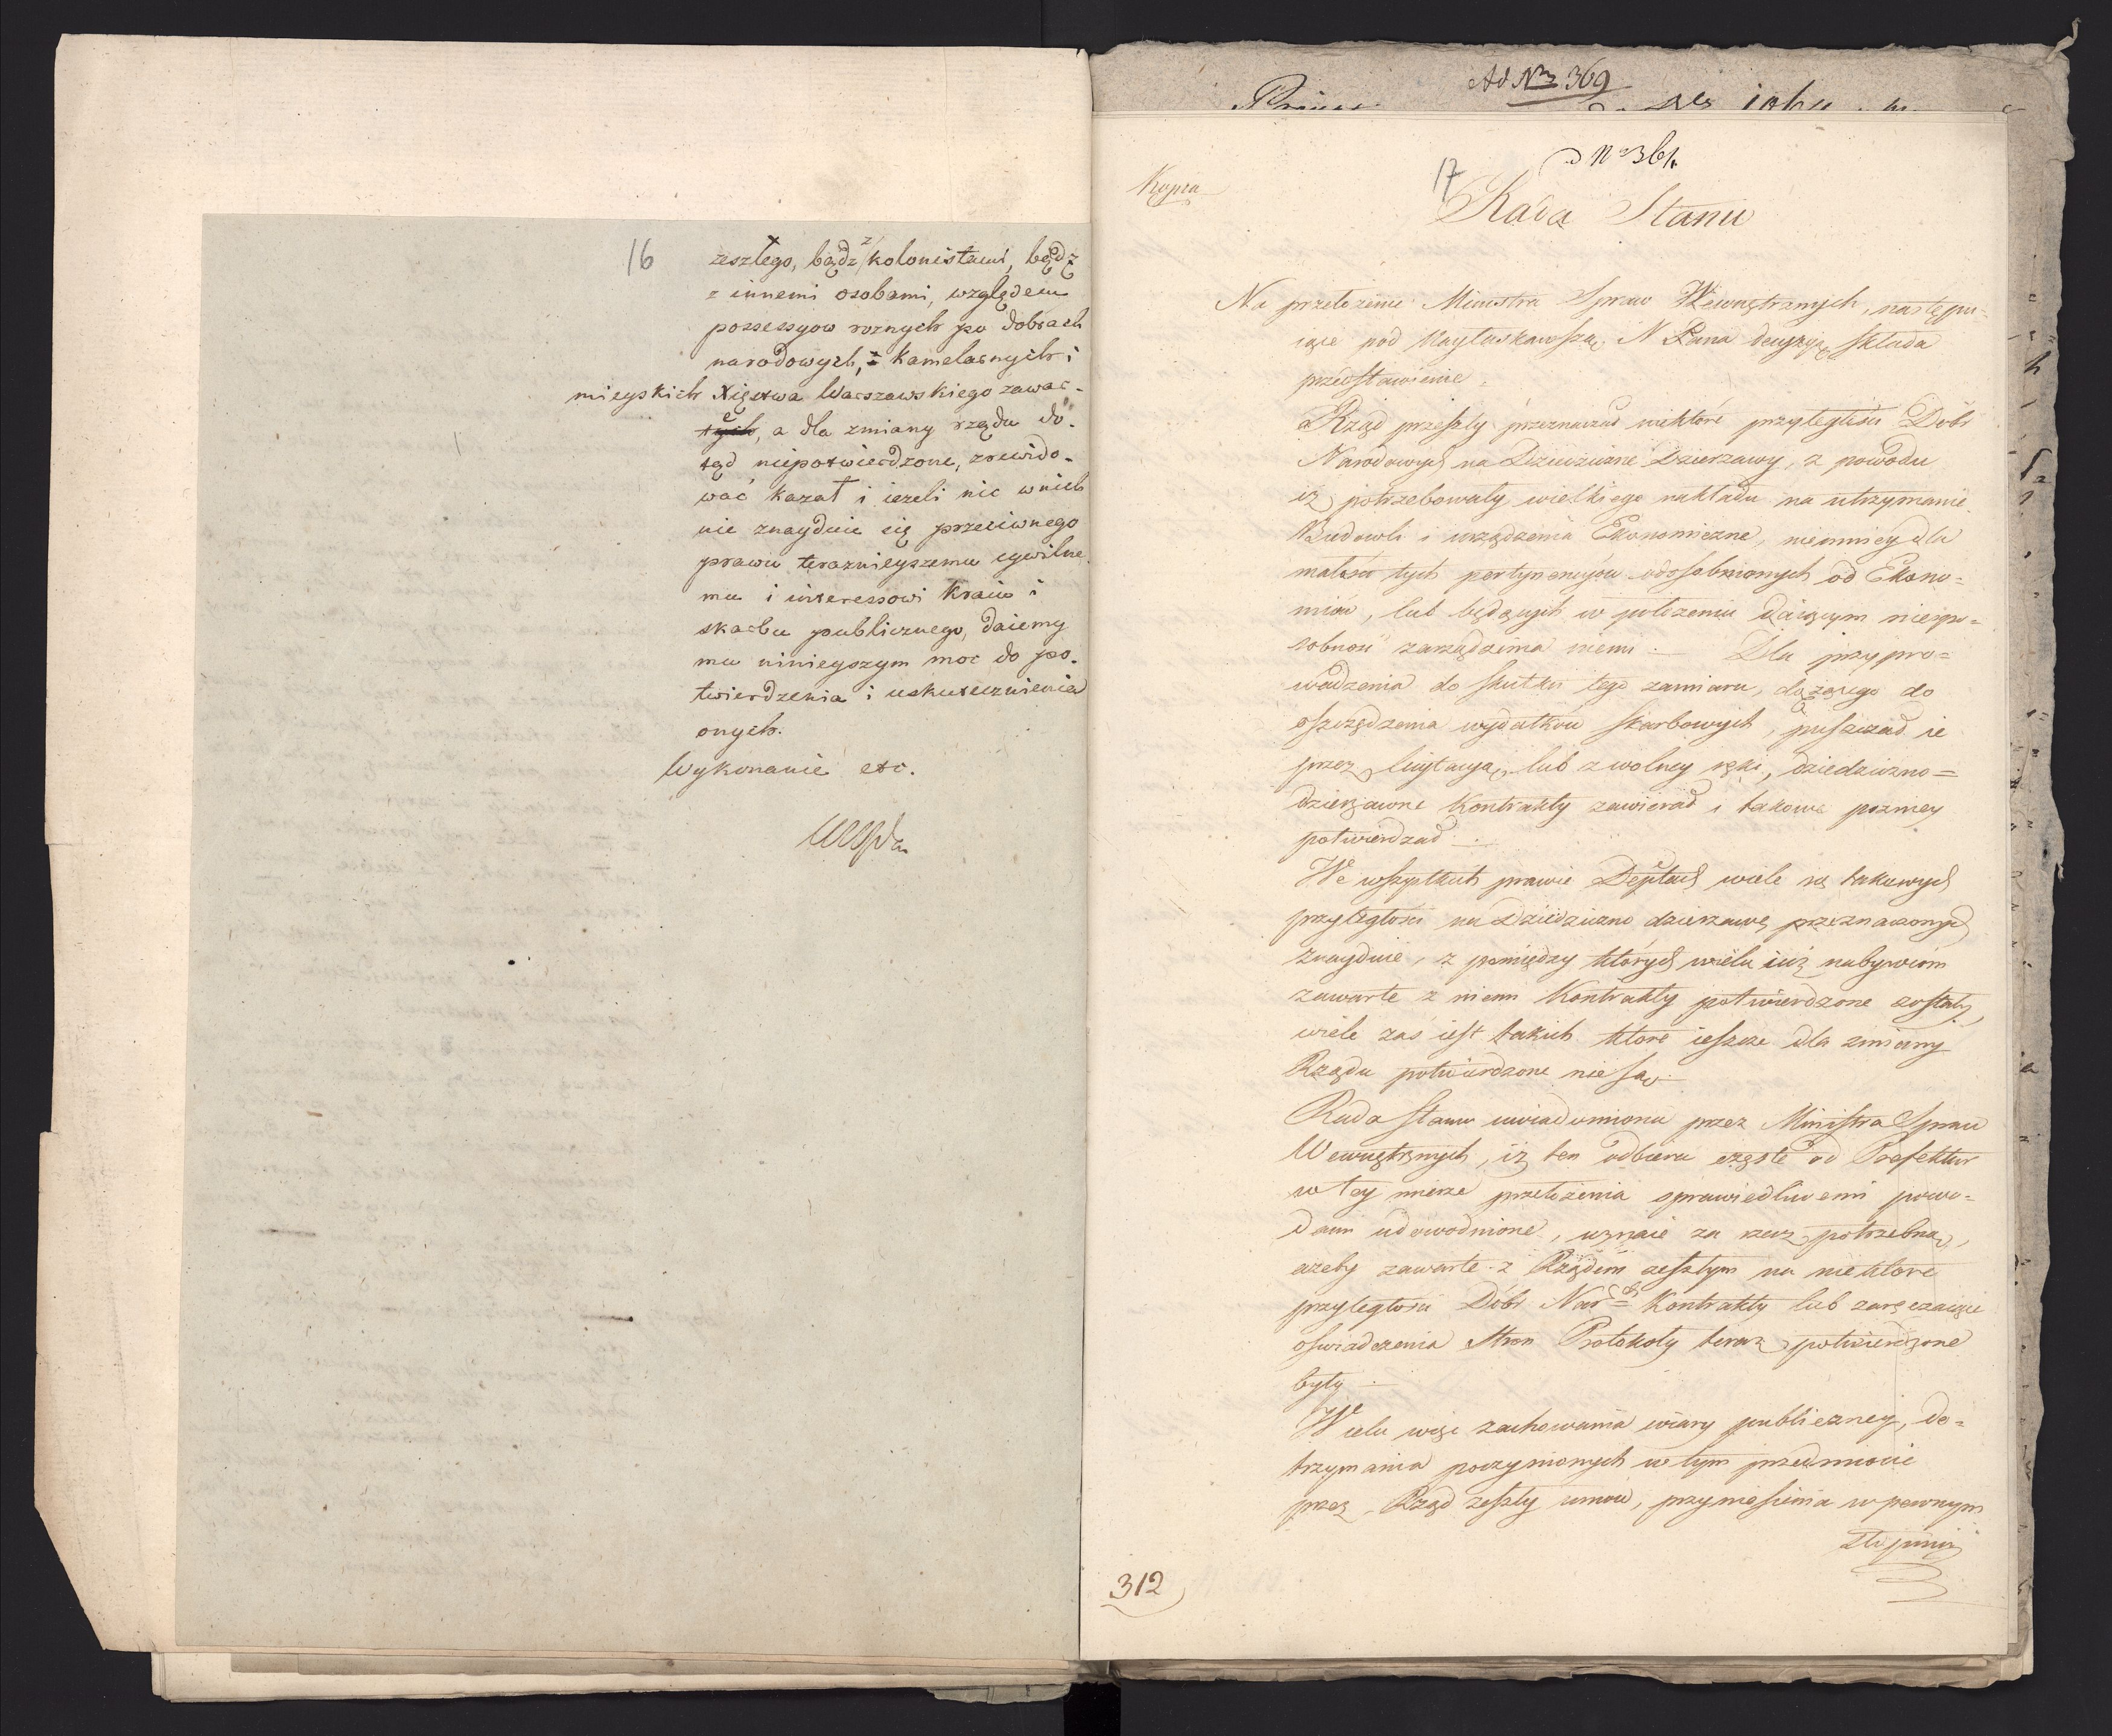 16
zeszłego, bądz z kolonistami, bądz
z innemi osobami, względem
possessyow roznych po dobrach
narodowych, kameralnych i
mieyskich Xięstwa Warszawskiego zawar-
te, a dla zmiany rządu do-
tąd niepotwierdzone, zrewido-
wać kazał i ieżeli nic w nich
nie znaydzie się przeciwnego
prawu teraznieyszemu cywilne-
mu i interessowi kraiu i
skarbu publicznego, daiemy
mu ninieyszym moc do po-
twierdzenia i uskutecznienia
onych.
Wykonanie etc.
Ad Nr 369
Nr 364
17
Kopia
Rada Stanu
Na przełożenie Ministra Spraw Wewnętrznych, następu-
iące pod Nayłaskawszą N Pana decyzyą składa
przedstawienie
Rząd przeszły przeznaczał niektóre przyległości Dóbr
Narodowych na Dziedziczne Dzierzawy, z powodu
iż potrzebowały wielkiego nakładu na utrzymanie
Budowli i urządzenia Ekonomiczne, niemniey dla
małości tych pertynencyow odosobnionych od Ekono-
miów, lub będących w położeniu daiącym niespo-
sobność zarządzania niemi. Dla przypro-
wadzenia do skutku tego zamiaru, dążącego do
oszczędzenia wydatków skarbowych, puszczał ie
przez licytacyą, lub z wolney ręki, dziedziczno-
dzierzawne Kontrakty zawierał i takowe pozniey
potwierdzał.
We wszystkich prawie Deptach wiele się takowych
przyległości na Dziedziczno dzierzawę przeznaczonych
znayduie, z pomiędzy których wielu iuż nabywcom
zawarte z niemi Kontrakty potwierdzone zostały,
wiele zaś iest takich które ieszcze dla zmiany
Rządu potwierdzone nie są.
Rada Stanu uwiadomiona przez Ministra Spraw
Wewnętrznych, iż ten odbiera częste od Prefektur
w tey mierze przełożenia sprawiedliwemi powo-
dami udowodnione, uznaie za rzecz potrzebną,
ażeby zawarte z Rządem zeszłym na niektore
przyległości Dóbr Narch Kontrakty lub zaręczaiące
oświadczenia Stron Protokoły teraz potwierdzone
były.
W celu więc zachowania wiary publiczney, do-
trzymania poczynionych w tym przedmiocie
przez Rząd zeszły umów, przyniesienia w pewnym
312